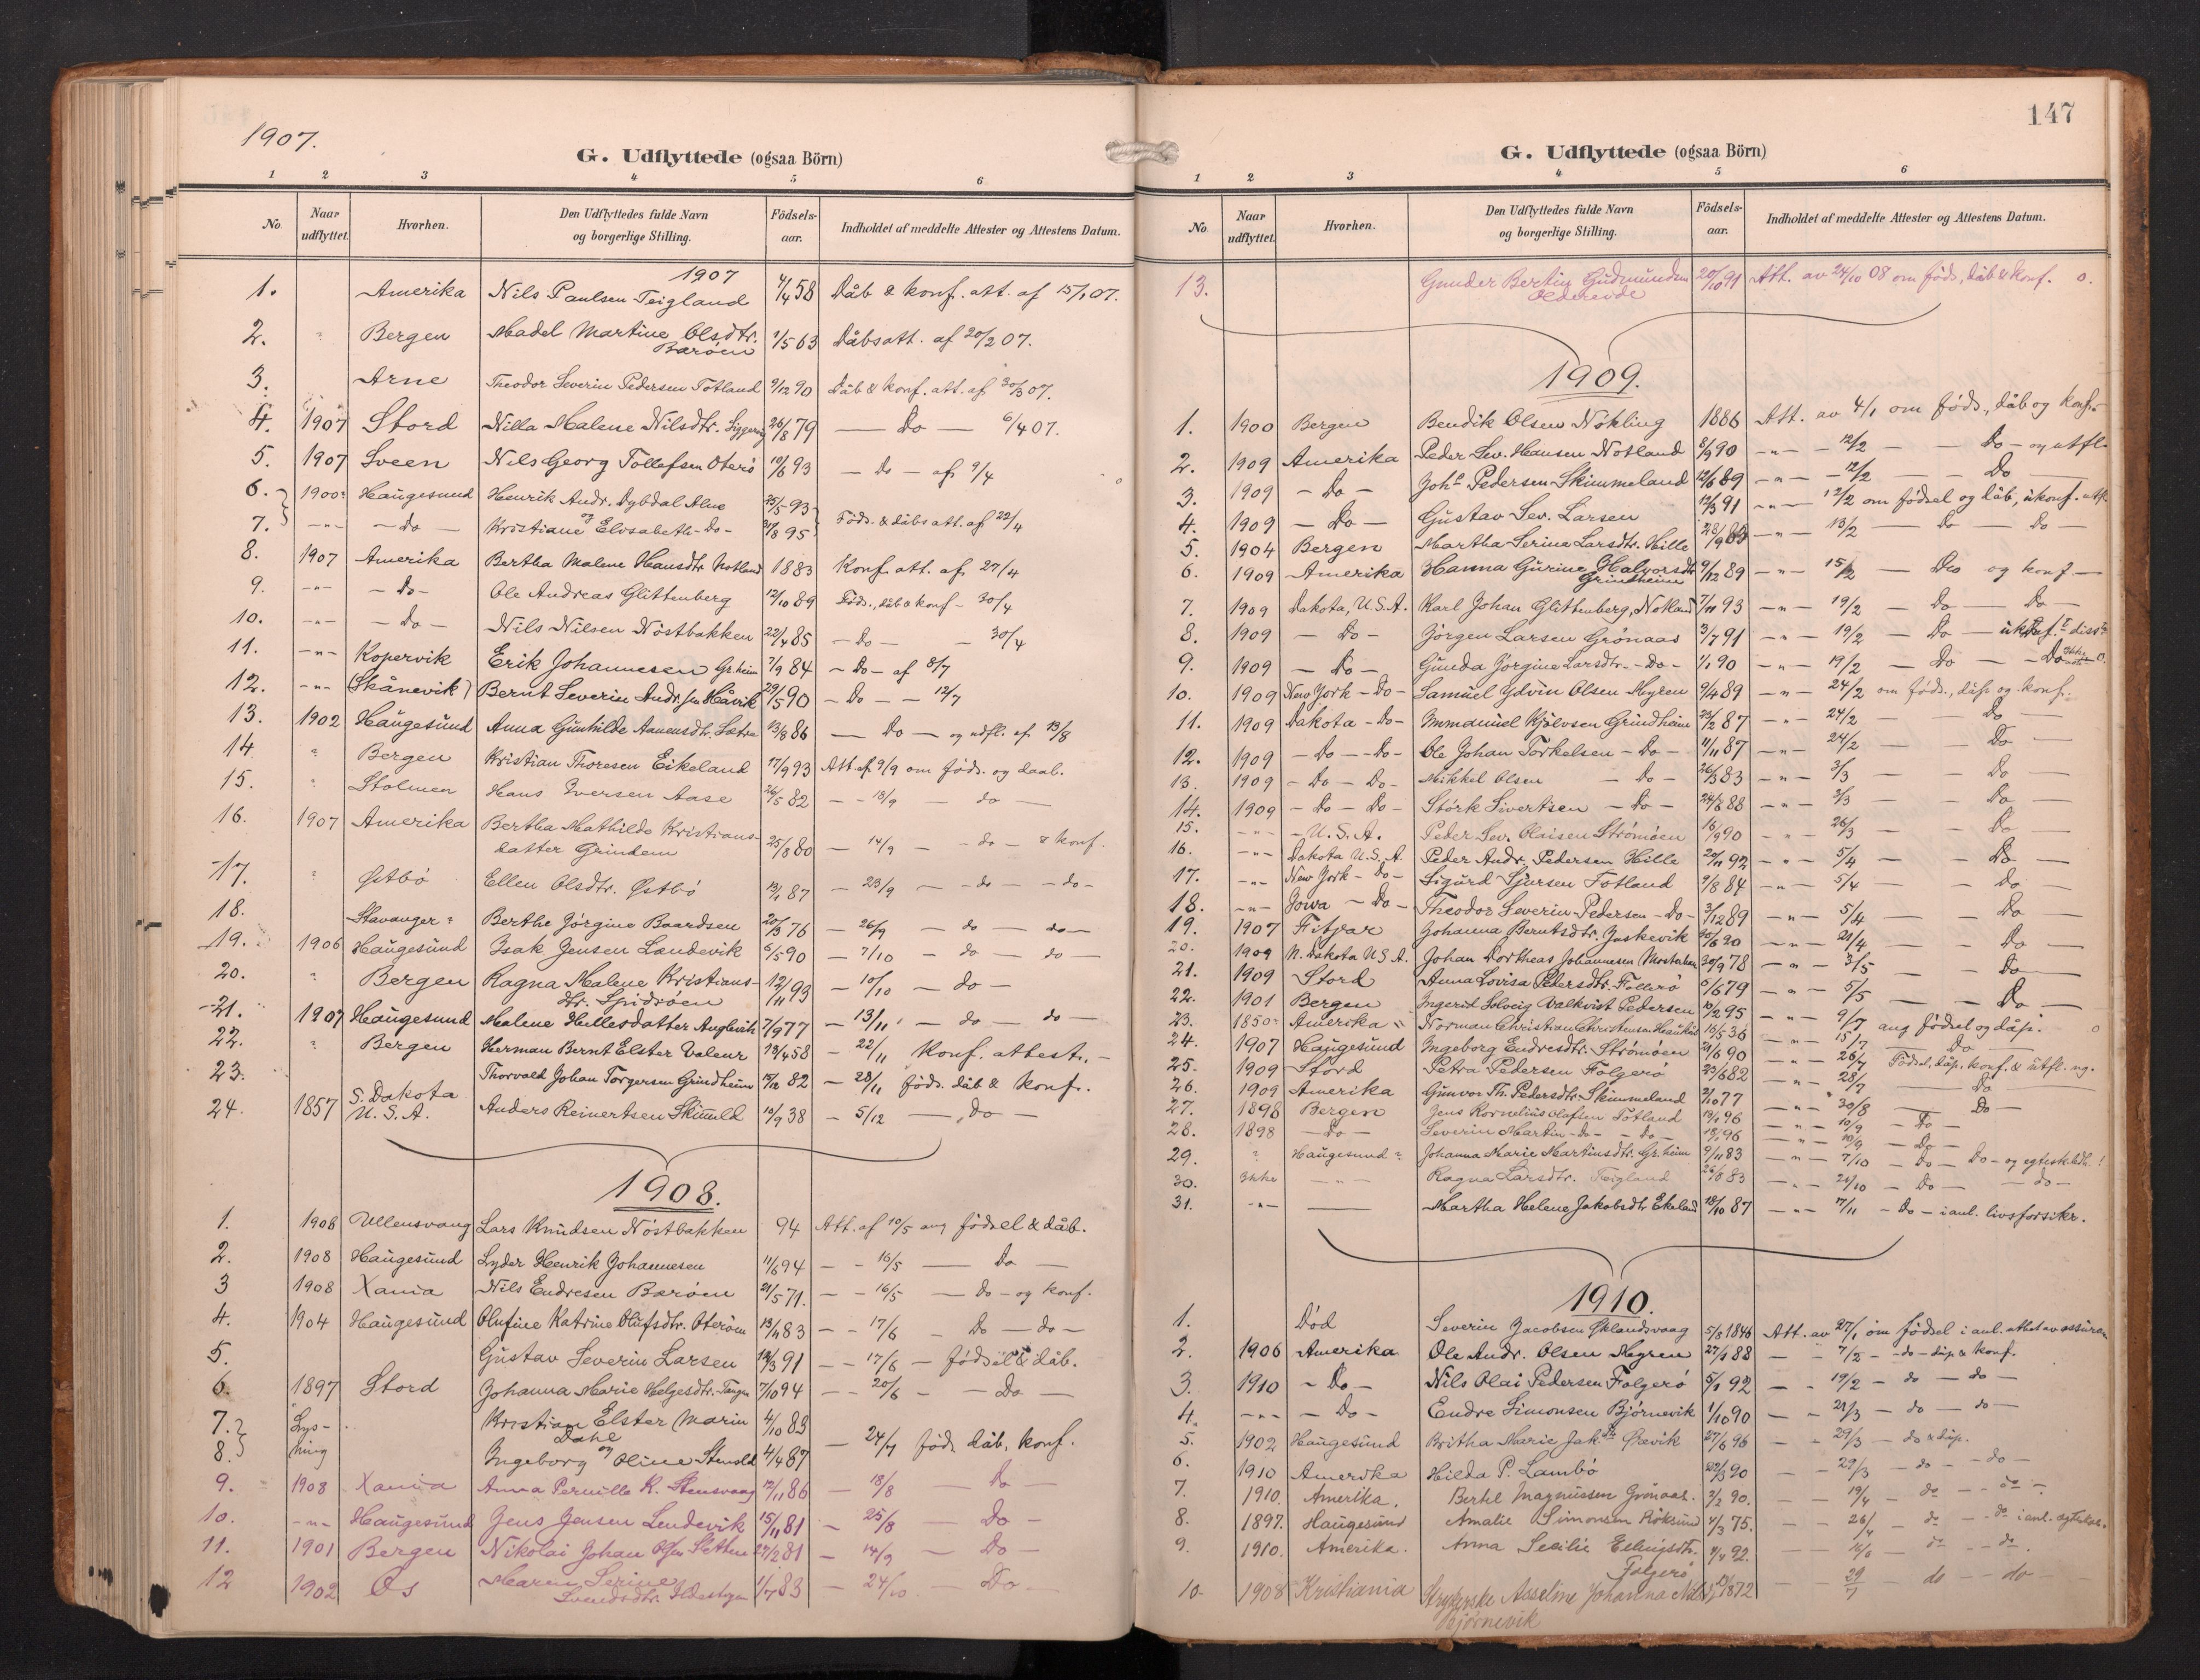 1907.
G. Udflyttede (ogsaa Börn)
1 2 3 4 5 6
No. Naar udflyttet. Hvorhen. Den Udflyttedes fulde Navn og borgerlige Stilling. Födsels-aar. Indholdet af meddelte Attester og Attestens Datum.
1907
1. Amerika Nils Paulsen Teigland 4/4 58 Dåb & konf. att. af 15/1 07.
2. " Bergen Madel Martine Olsdtr. 1/5 63 Dåbsatt. af 20/2 07.
Barøen
3. Arne Theodor Severin Pedersen Totland 9/12 90 Dåb & konf. att. af 30/3 07.
4. 1907 Stord Nilla Malene Nilsdtr. 26/8 79 — Do — 6/4 07.
5. 1907 Sveen Nils Georg Tollefsen Oterø 10/6 93 — Do — af 9/4
6. 1900 Haugesund Henrik Andr. Dybdal Alne 25/5 93
7. -"- - Do - og Kristiane Elisabeth - Do - 95 Föds. & dåbs att. af 22/4
8. 1907 Amerika Bertha Malene Hansdtr. Notland 1883 Konf. att. af 27/4
9. -"- - Do - Ole Andreas Glittenberg 12/10 89 Föds., dåb & konf - 30/4
10. -"- - Do - Nils Nilsen Nöstbakken 22/4 85 - Do - - 30/4
11. -"- Kopervik Erik Johannesen Gr.heim 7/9 84 - Do - af 8/7
12. -"- (Skånevik) Bernt Severin Andr.sen Håvik 29/5 90 - Do - - 12/7
13. 1902 Haugesund Anna Gunhilde Aanensdtr. Sætre 13/8 86 — Do — og udfl. af 13/8
14. " Bergen Kristian Thoresen Eikeland 17/9 93 Att. af 9/9 om föds. og daab.
15. " Stolmen Hans Iversen Aase 26/5 82 - - 13/9 - do -
16. 1907 Amerika Bertha Mathilde Kristians-
datter Grindem 25/8 80 - 14/9 - - do - & konf.
17. " Østbö Ellen Olsdtr. Østbö 13/1 87 - 23/9 - - do - - do -
18. Stavanger Berthe Jörgine Baardsen 20/3 76 - 26/9 - do - do -
19. 1906 Haugesund Isak Jensen Landevik 6/5 90 - 7/10 - do - do -
20. " Bergen Ragna Malene Kristians-
dtr. Spidsöen 12/11 93 - 10/10 - do -
21. 1907 Haugesund Malene Hellesdatter 7/9 77 - 13/11 - do - do -
22. " Bergen Herman Bernt Elster Valeur 13/4 58 - 22/11 Konf. attest. -
23. Thorvald Johan Torgersen Grindheim 15/12 82 - 28/11 föds. dåb & konf.
24. 1857 S. Dakota U.S.A. Anders Reinertsen 10/9 38 - 5/12 - Do -
1908.
1. 1906 Ullensvang Lars Knudsen Nöstbakken 94 Att. af 10/5 ang födsel & dåb.
2. 1908 Haugesund Lyder Henrik Johannesen 11/6 94 - - 16/5 - Do -
3 1908 Xania Nils Endresen Barøen 21/5 71. - - 16/5 - Do - og konf.
4. 1904 Haugesund Olufine Katrine Olufsdtr. Oterøen 13/11 83 - - 17/6 - Do - do -
5. Gustav Severin Larsen 12/3 91 - - 17/6 - födsel & dåb.
6. 1897 Stord Johanna Marie Helgesdtr. Tangen 7/10 94 - - 20/6 - - Do -
7. Lys- Kristian Elster Marin 4/10 83
Dahl
8. ning og Ingeborg Oline Stensld 4/4 87 - 24/7 föds. dåb, konf.
9. 1908 Xania Anna Pernille K. Stensvaag 12/11 86 - 13/8 Do -
10. -"- Haugesund Jens Jensen Lendevik 15/11 81 - 25/8 - Do -
11. 1901 Bergen Nikolai Johan 27/2 81 - 14/9 - Do -
12 1902 Os Maren Serine 1/7 83 - 24/10 - Do -
Svendsdtr.
147
G. Udflyttede (ogsaa Börn)
1 2 3 4 5 6
No. Naar udflyttet. Hvorhen. Den Udflyttedes fulde Navn og borgerlige Stilling. Födsels-aar. Indholdet af meddelte Attester og Attestens Datum.
13. Gunder Bertin Gudmundsen 20/10 91 Att. av 24/10 08 om föds, dåb & konf. o.
1909.
1. 1900 Bergen Bendik Olsen Nökling 1886 Att. av 4/1 om föds., dåb og konf.
2. 1909 Amerika Peder Sev. Hansen Notland 8/9 90 -"- - 12/2 - - Do - og utfl.
3. 1909 - Do - Johs. Pedersen Skimmeland 12/6 89 -"- - 12/2 - - Do -
4. 1909 - Do - Gustav Sev. Larsen 12/3 91 -"- 12/2 om födsel og dåb, ukonf.
5. 1904 Bergen Martha Serina Larsdtr. Hille 28/9 -"- 13/2 - Do - Do -
6. 1909 Amerika Hanna Gurine Halvorsdtr. 9/12 89 -"- 15/2 - Do og konf -
Grindheim
7. 1909 Dakota, U.S.A. Karl Johan Glittenberg, Notland 7/11 93 -"- 19/2 - Do - Do -
8. 1909 - Do - Jörgen Larsen Grönaas 3/7 91 -"- 19/2 - Do -
9. 1909 - Do - Gunda Jörgine Larsdtr. - Do - 1/1 90 -"- 19/2 - Do - - Do
10. 1909 New York - Do - Samuel Edvin Olsen Myren 9/4 89 -"- 24/2 om föds., dåp og konf.
11. 1909 Dakota - Do - Immanuel Kjölvsen Grindheim 23/2 87 -"- 24/2 - Do -
12. 1909 - Do - - Do - Ole Johan Torkelsen - Do - 11/11 87 -"- 24/2 - - Do -
13. 1909 - Do - Do - Mikkel Olsen - Do - 26/3 83 -"- 3/3 - - Do -
14. 1909 - Do - Do - Störk Sivertsen - Do - 24/6 88 -"- 3/3 - - Do -
15. -"- - U.S.A. Peder Sev. Olaisen Strömöen 16/9 90 -"- 26/3 - - Do -
16. -"- Dakota U.S.A. Peder Andr. Pedersen Hille 22/11 92 -"- 5/4 - - Do -
17. -"- New York - Do - Sigurd Sjursen Totland 9/8 84 -"- 5/4 - - Do -
18. -"- Jowa - Do - Theodor Severin Pedersen - Do - 3/12 89 -"- 5/4 - - Do -
19. 1907 Fitjar Johanna Berntsdtr. 30/6 90 -"- 21/4 - - Do -
20. 1909 N. Dakota U.S.A. Johan Dortheas Johannesen 30/9 78 -"- 3/5 - - Do -
21. 1909 Stord Anna Lovisa Pedersdtr. Folgerö 6/6 79 -"- 5/5 - - Do -
22. 1901 Bergen Ingerid Solveig Valkvist Pedersen 10/2 95 -"- 9/7 ang födsel og dåp.
23. 1850 Amerika Norman Christian Christensen 16/5 36 -"- 15/7 - Do -
24. 1907 Haugesund Ingeborg Endresdtr. Strömöen 21/6 90 -"- 26/7 Födsel, dåp, konf. & utfl.
25. 1909 Stord Petra Pedersen Folgerö 23/6 82 -"- 28/7 Do
26. 1909 Amerika Gunvor Th. Pedersdtr. Skimmeland 2/10 77 -"- 30/8 - Do -
27. 1898 Bergen Jens Kornelius Olafsen Totland 13/1 96 -"- 10/9 - Do -
28. 1898 - Do - Severin Martin - do - - do - 13/1 96 -"- 10/9 - Do -
29. ? Haugesund Johanna Marie Martinsdtr. Gr.heim 9/11 83 -"- 7/10 - Do - Do - og
30. Ikke -"- Ragna Larsdtr. Teigland 26/8 83 -"- 21/10 - Do - - do -
31. -"- — Martha Helene Jakobsdtr. Ekeland 18/10 87 -"- 17/11 - Do - i anl. livsforsikr.
1910.
1. Död Severin Jacobsen 5/8 1846 Att. av 27/1 om födsel i anl.
2. 1906 Amerika Ole Andr. Olsen Myren 27/1 88 - " 7/2 - - do - dåp & konf.
3. 1910 - Do - Nils Olai Pedersen Folgerö 5/1 92 - " 19/2 - do - do -
4. -"- - Do - Endre Simonsen Björnevik 1/10 90 - - 21/3 - do - do -
5. 1902 Haugesund Britha Marie Jak.dtr. 27/6 96 - - 29/3 - do & dåp.
6. 1910 Amerika Hilda P. Lambö 22/3 90 - - 29/3 - do - - do -
7. 1910. Amerika. Bertel Magnussen Grönaas. 2/2 90. - - 19/4 - do - - do -
8. 1897. Haugesund Amalie Simonsen Röksund 4/3 75. - - 26/4 - do - - do i anl.
9. 1910. Amerika. Anna Secilie Ellingsdtr. 4/4 92. - - do - - do.
Folgerö
10. 1908 Kristiania Asseline Johanna 1872 - - 29/7 - do - - do -
Björnevik